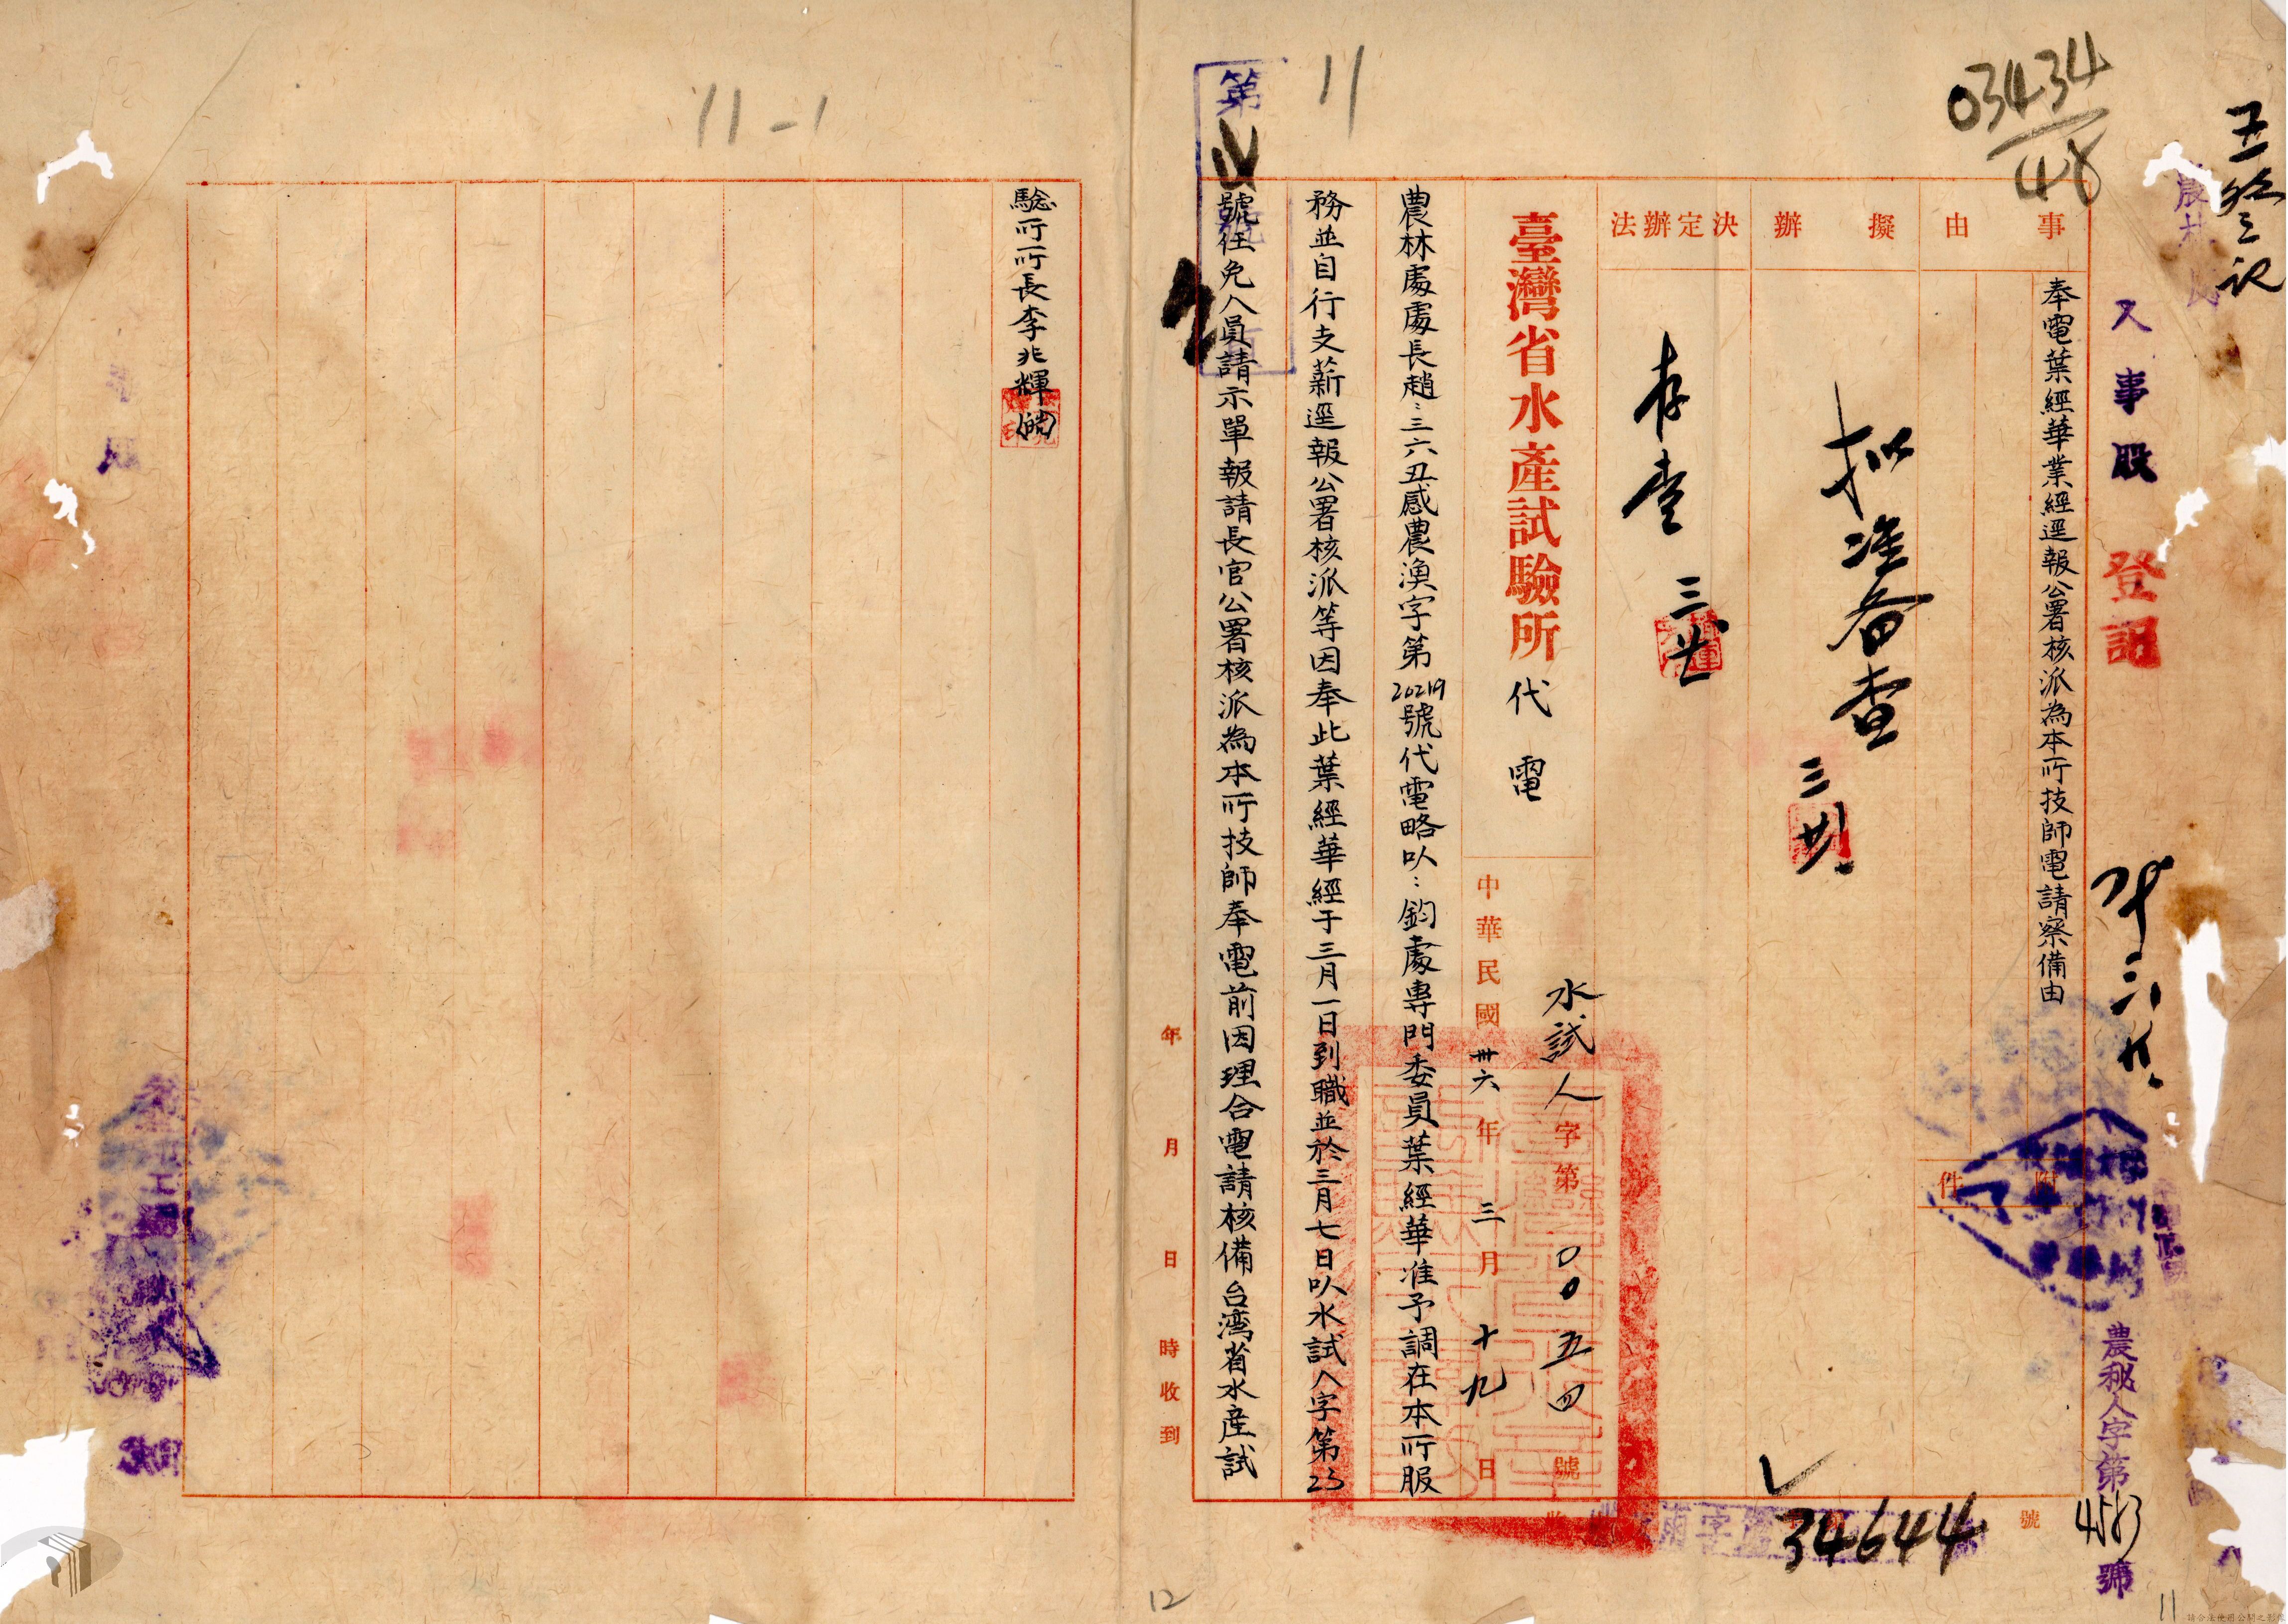 03434
48
11
11-1
人事股
登記
事由
奉電葉經華業經逕報公署核派為本所技師電請察備由
附件
擬辦
拟准备查
三
決定辦法
存查
三
臺灣省水產試驗所代電
水試人字第〇〇五四號
中華民國卅六年三月十九日
農林處處長趙：三六丑感農漁字第20219號代電略以：鈞處專門委員葉經華准予調在本所服
務並自行支薪逕報公署核派等因奉此葉經華經于三月一日到職並於三月七日以水試人字第23
號任免人員請示單報請長官公署核派為本所技師奉電前因理合電請核備台湾省水產試
驗所所長李兆輝
年月日時收到
第
農秘人字第4583號
號
34644
12
11